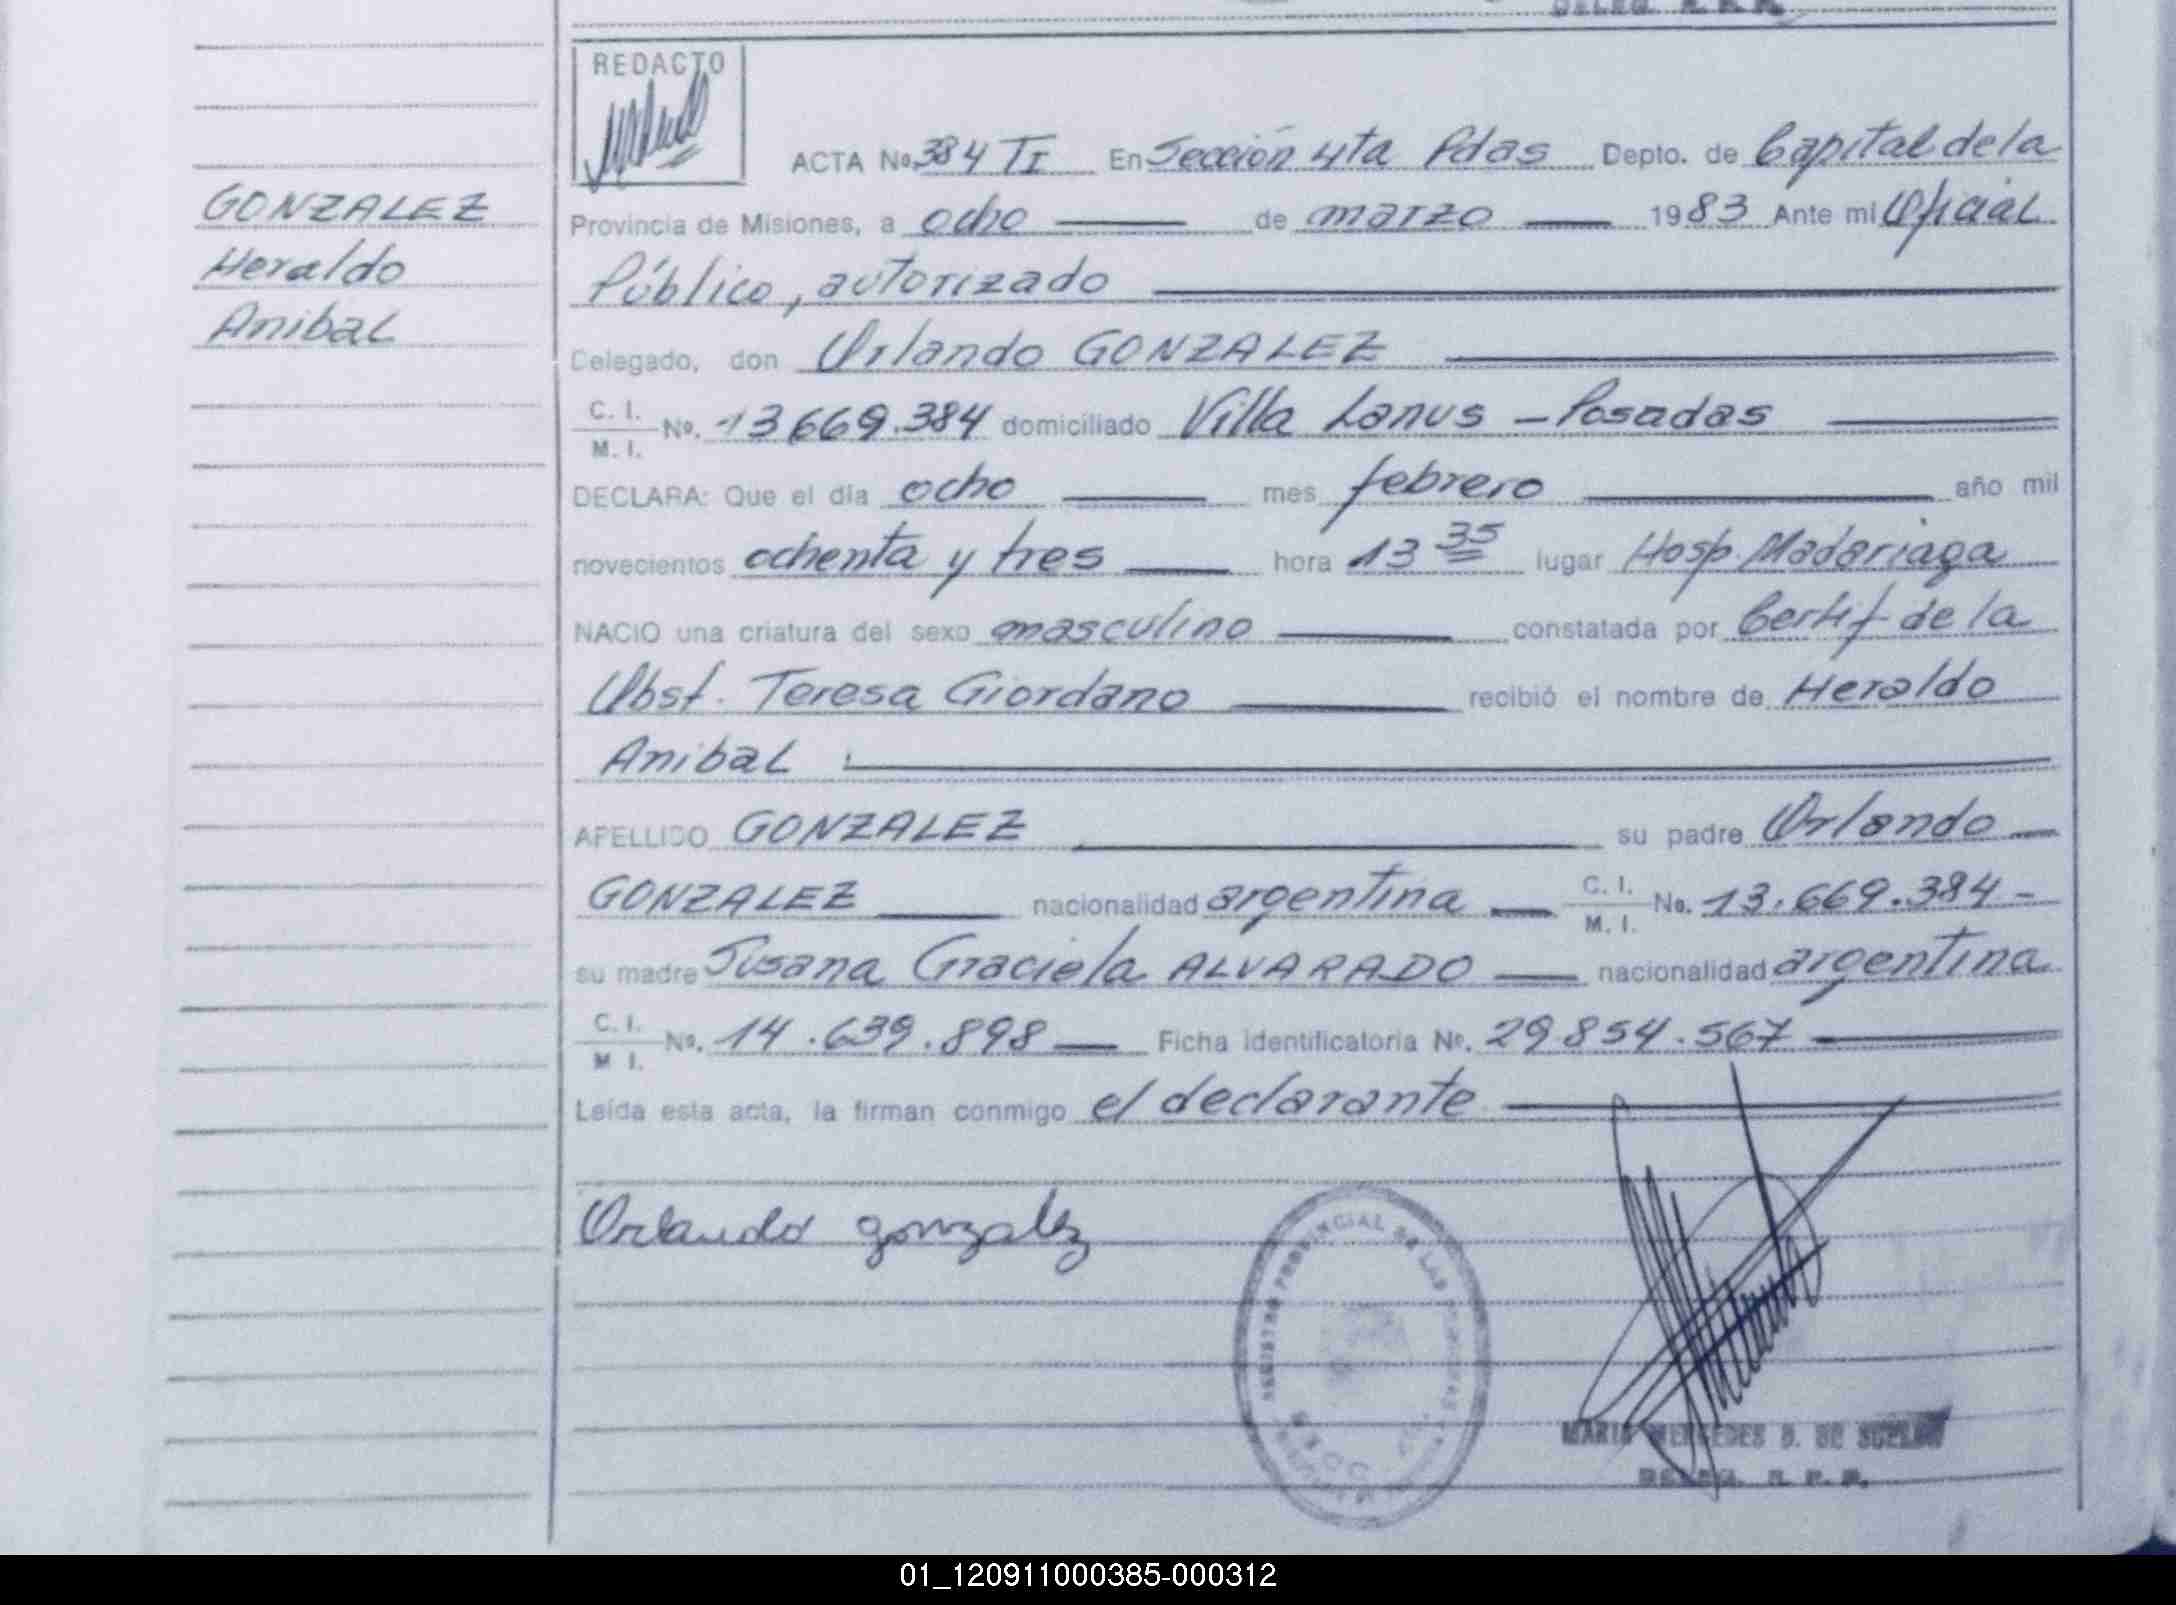 DELEG. R. P. P.
REDACTO
ACTA No. 384 TI En Sección 4ta Pdas Depto. de Capital de la
Provincia de Misiones, a ocho de marzo 1983 Ante mi Oficial
Público, autorizado
Delegado, don Orlando GONZALEZ
C. I.
M. I. No. 13669.384 domiciliado Villa Lanus - Posadas
DECLARA: Que el día ocho mes febrero año mil
novecientos ochenta y tres hora 13 35 lugar Hosp. Madariaga
NACIO una criatura del sexo masculino constatada por Certif de la
Obst. Teresa Giordano recibió el nombre de Heraldo
Anibal
APELLIDO GONZALEZ su padre Orlando
GONZALEZ nacionalidad argentina C. I. M. I. No. 13.669.384 -
su madre Susana Graciela ALVARADO nacionalidad argentina
C. I.
M. I. No. 14.639.898 Ficha identificatoria No. 29854.567
Leída esta acta, la firman conmigo el declarante
Orlando gonzalez
REGISTRO PROVINCIAL DE LAS PERSONAS
MARIA MERCEDES D. DE
DELEG. R. P. P.
GONZALEZ
Heraldo
Anibal
01_120911000385-000312